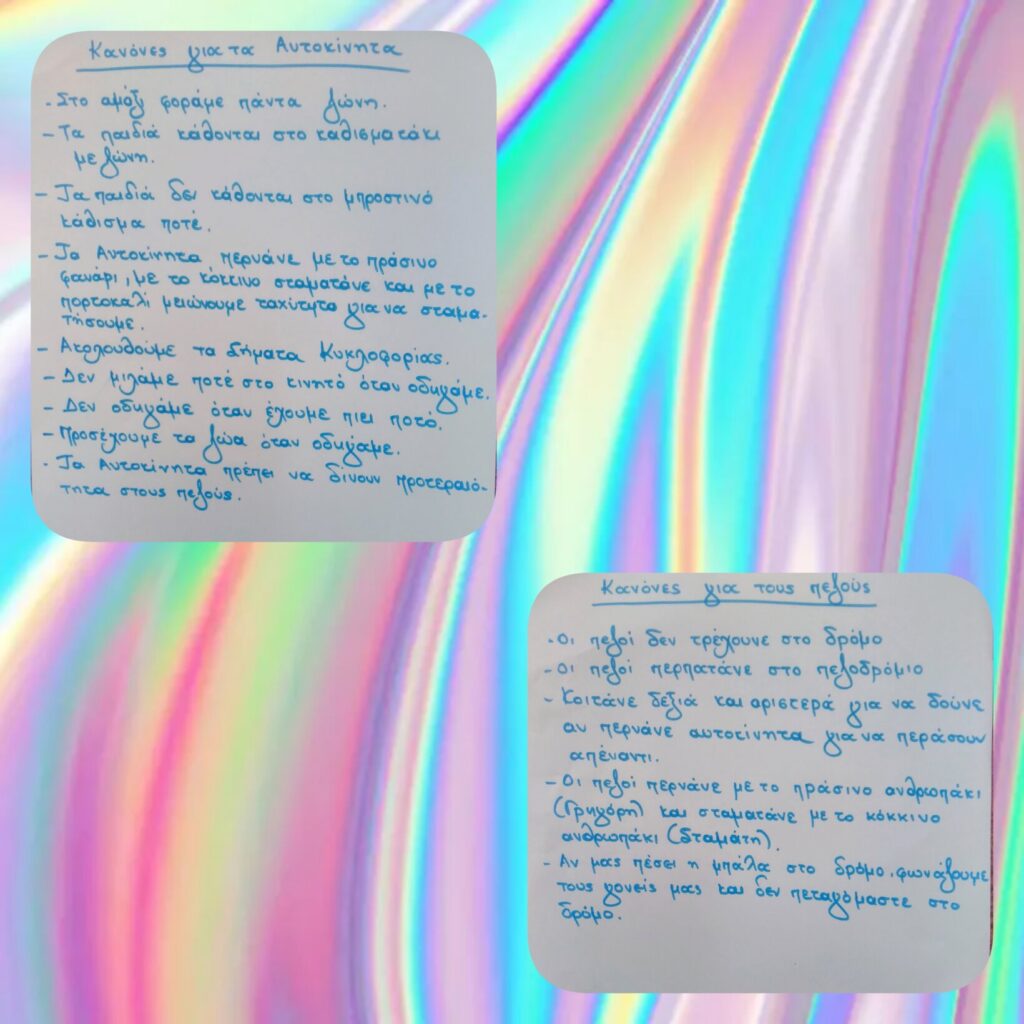 Κανόνες για τα Αυτοκίνητα
- Στο αμάξι φοράμε πάντα ζώνη.
- Τα παιδιά κάθονται στο καθισματάκι
με ζώνη.
- Τα παιδιά δεν κάθονται στο μπροστινό
κάθισμα ποτέ.
- Τα Αυτοκίνητα περνάνε με το πράσινο
φανάρι, με το κόκκινο σταματάνε και με το
πορτοκαλί μειώνουμε ταχύτητα για να σταμα-
τήσουμε.
- Ακολουθούμε τα Σήματα Κυκλοφορίας.
- Δεν μιλάμε ποτέ στο κινητό όταν οδηγάμε.
- Δεν οδηγάμε όταν έχουμε πιει ποτό.
- Προσέχουμε τα ζώα όταν οδηγάμε.
- Τα Αυτοκίνητα πρέπει να δίνουν προτεραιό-
τητα στους πεζούς.
Κανόνες για τους πεζούς
- Οι πεζοί δεν τρέχουνε στο δρόμο
- Οι πεζοί περπατάνε στο πεζοδρόμιο
- Κοιτάνε δεξιά και αριστερά για να δούνε
αν περνάνε αυτοκίνητα για να περάσουν
απέναντι.
- Οι πεζοί περνάνε με το πράσινο ανθρωπάκι
(Γρηγόρη) και σταματάνε με το κόκκινο
ανθρωπάκι (Σταμάτη).
- Αν μας πέσει η μπάλα στο δρόμο, φωνάζουμε
τους γονείς μας και δεν πεταγόμαστε στο
δρόμο.